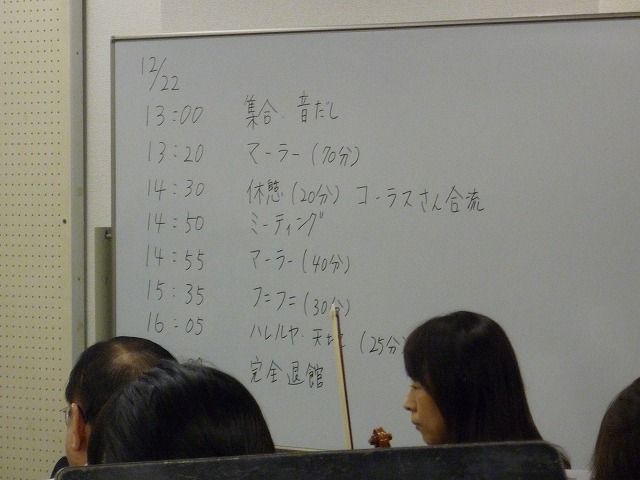 12/22
13:00 集合・音だし
13:20 マーラー(70分)
14:30 休憩(20分) コーラスさん合流
14:50 ミーティング
14:55 マーラー(40分)
15:35 フニフニ(30分)
16:05 ハレルヤ・天 (25分)
完全退館